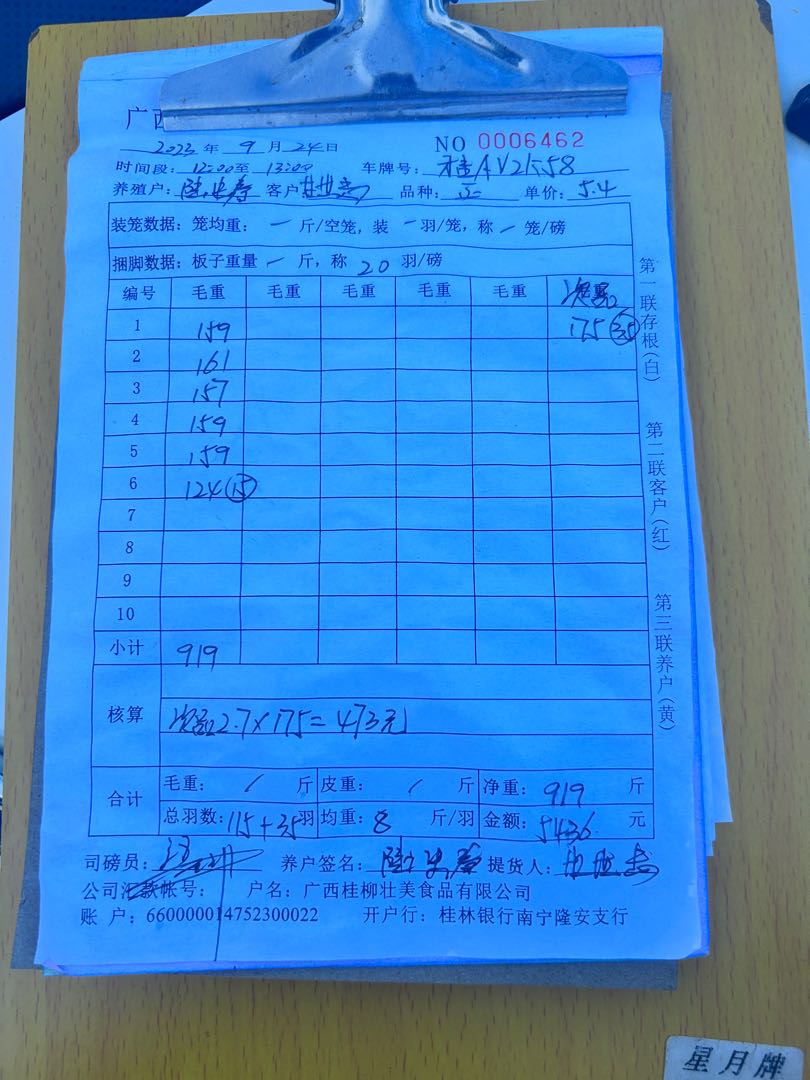 广西
NO 0006462
2023 年 9 月 24 日
时间段: 12:00 至 13:00 车牌号: 桂AV2L558
养殖户: 客户: 品种: 正 单价: 5.4
装笼数据: 笼均重: 一 斤/空笼, 装 一 羽/笼, 称 一 笼/磅
捆脚数据: 板子重量 一 斤, 称 20 羽/磅
编号 毛重 毛重 毛重 毛重 毛重 次品
1 159 175 35
2 161
3 157
4 159
5 159
6 124 15
7
8
9
10
小计 919
核算 次品2.7×175=473元
合计 毛重: / 斤 皮重: / 斤 净重: 919 斤
总羽数: 115+35 羽 均重: 8 斤/羽 金额: 5436 元
司磅员: 养户签名: 提货人:
公司汇款帐号: 户名: 广西桂柳壮美食品有限公司
账 户: 660000014752300022 开户行: 桂林银行南宁隆安支行
第一联存根(白)
第二联客户(红)
第三联养户(黄)
星月牌